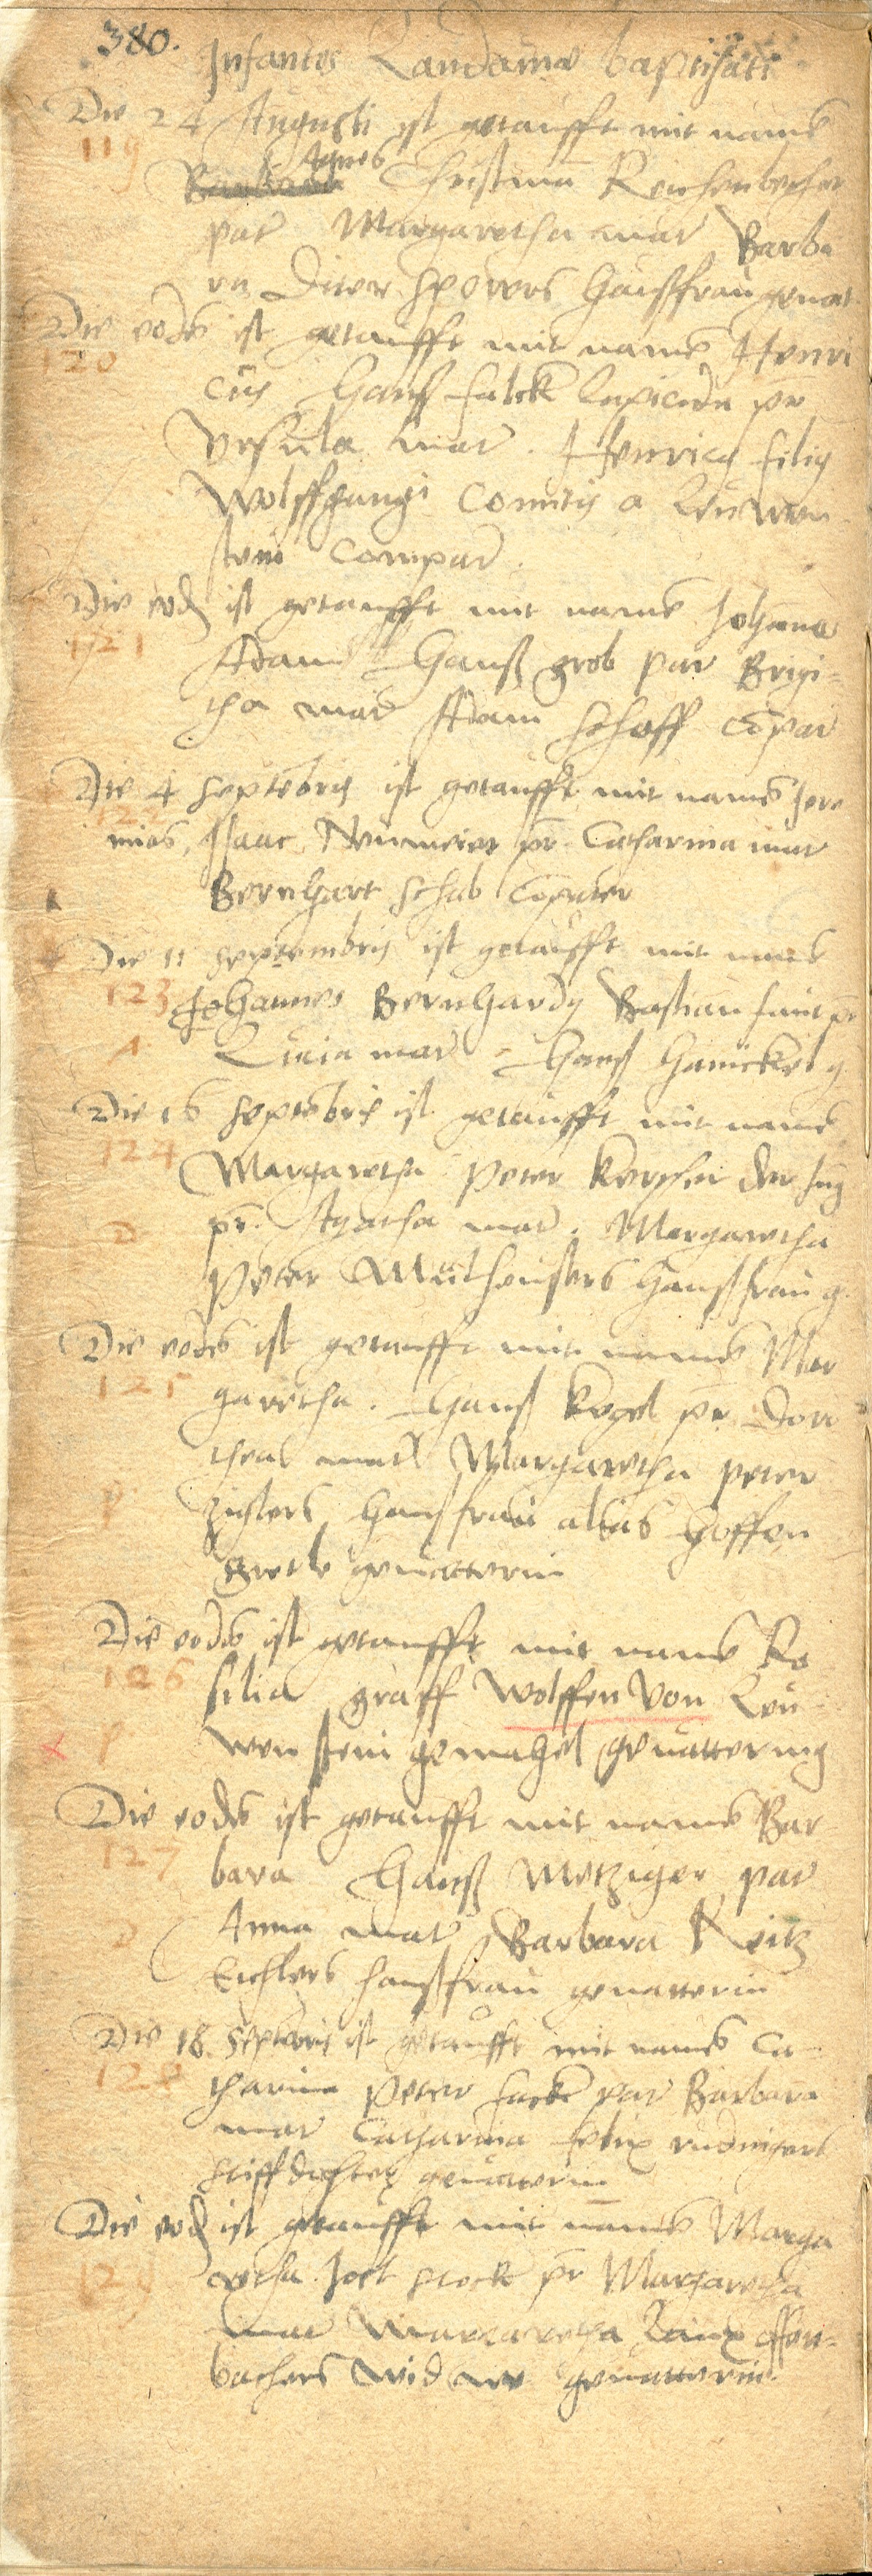 380.
Infantes Landauiae baptisati
Die 24 Augusti ist getaufft mit namen
119
Agnes
Barbara Christman
pat Margaretha mat Barba
ra hausfrau geuat
Die eode ist getaufft mit namen Henri
120
cus Hanß Falck lapicida pr
Vrsula mat. Henricus filius
Wolffgangi Comitis a Leuwen
stein compat.
Die eod ist getaufft mit namen Johann
121
Adam Hanß grob pat Brigi-
tha mat Adam Schoff copat
Die 4 Septebris ist getaufft mit namen Jere
122
mias, Isaac Neumeier pr. Catharina mat
Bernhart Schab Copater
Die 11 Septembris ist getaufft mit namen
123
Johannes Bernhardus Bastian pr
Lucia mat Hanß g
Die 16 Septebris ist getaufft mit namen
124
Margaretha Peter der Jung
pr. Agatha mat. Margaretha
Peter hausfrau g.
Die eode ist getaufft mit namen Mar
125
garetha. Hanß Kogel pr Doro
theae mat Margaretha peter
Ziglers hausfrau alias hoffen
gretle geuatterin
Die eode ist getaufft mit namen Ro
126
silia graff Wolffen von Leu
wenstein gemahel geuatterin
Die eode ist getaufft mit namen Bar
127
bara Hanß Metziger pat
Anna mat Barbara Veitz
Eichlers hausfrau geuatterin
Die 18. Septebris ist getaufft mit namen Ca
128
tharina Peter pat Barbara
mat Catharina Felix
geuatterin
Die eod ist getaufft mit namen Marga
129
retha Jost pr Margaretha
mat Margaretha offen-
bachers widwe geuatterin.